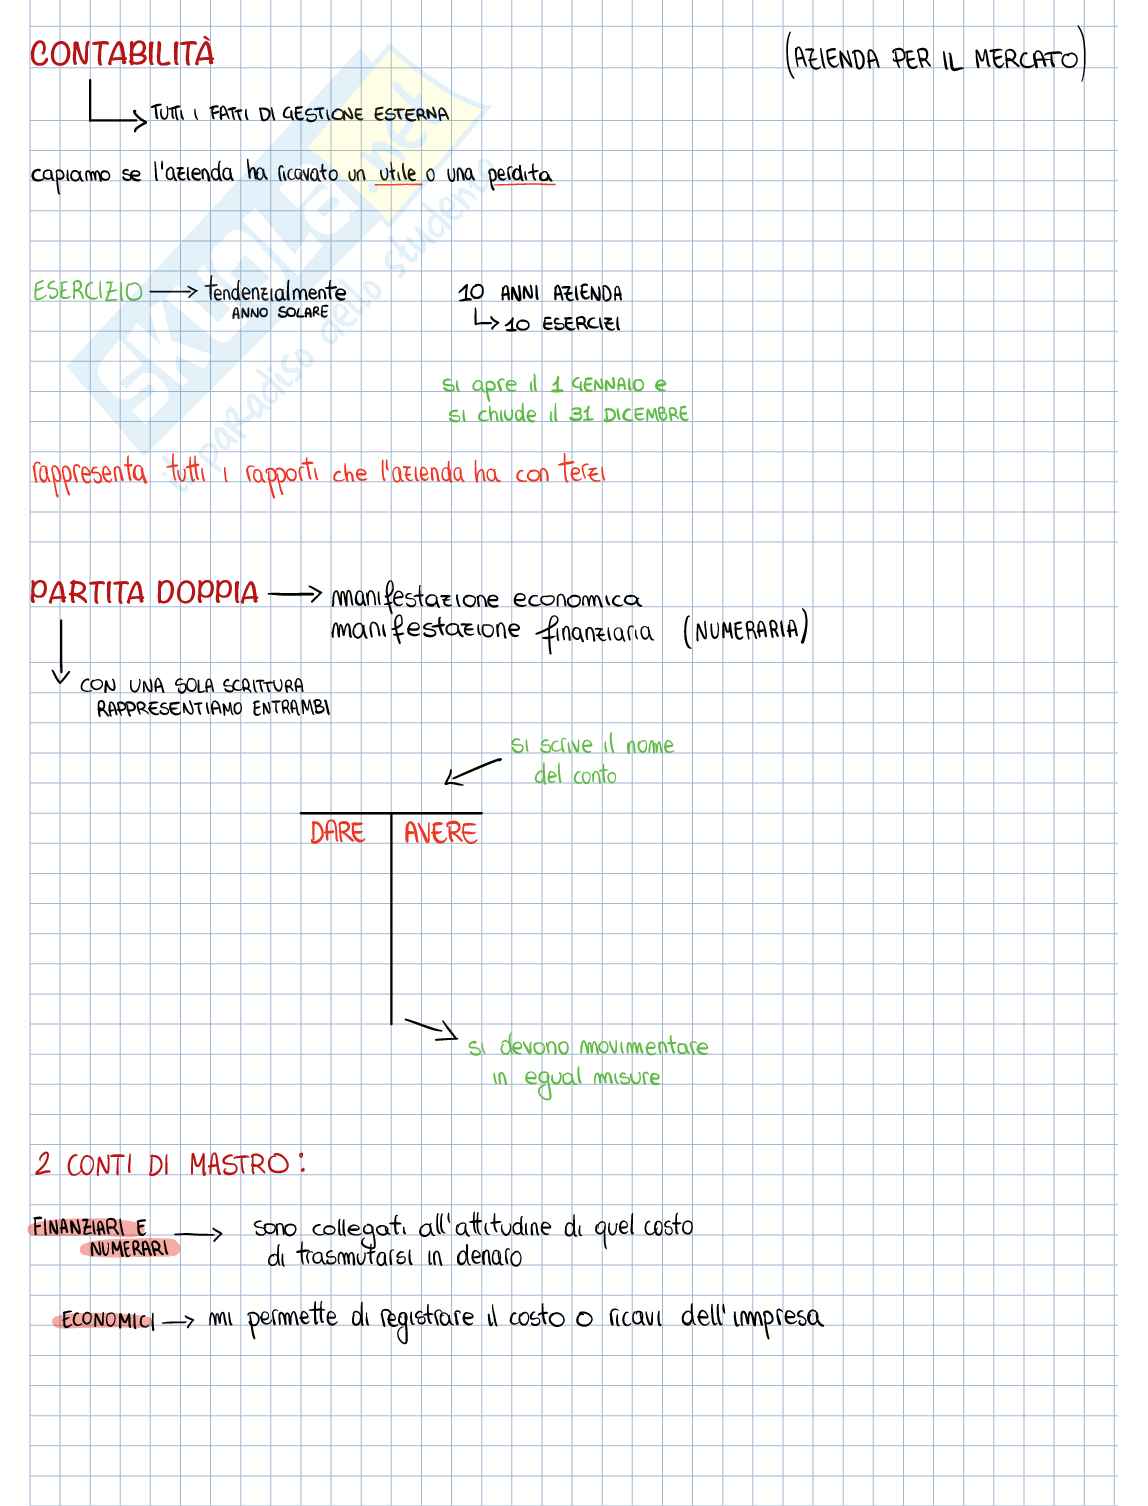 CONTABILITÀ
(AZIENDA PER IL MERCATO)
TUTTI I FATTI DI GESTIONE ESTERNA
capiamo se l'azienda ha ricavato un utile o una perdita
ESERCIZIO
tendenzialmente
ANNO SOLARE
10 ANNI AZIENDA
10 ESERCIZI
si apre il 1 GENNAIO e
si chiude il 31 DICEMBRE
rappresenta tutti i rapporti che l'azienda ha con terzi
PARTITA DOPPIA
manifestazione economica
manifestazione finanziaria (NUMERARIA)
CON UNA SOLA SCRITTURA
RAPPRESENTIAMO ENTRAMBI
si scrive il nome
del conto
DARE AVERE
si devono movimentare
in egual misure
2 CONTI DI MASTRO:
FINANZIARI E
NUMERARI
sono collegati all'attitudine di quel costo
di trasmutarsi in denaro
ECONOMICI
mi permette di registrare il costo o ricavi dell'impresa
SKUOLA.net
il paradiso dello studente